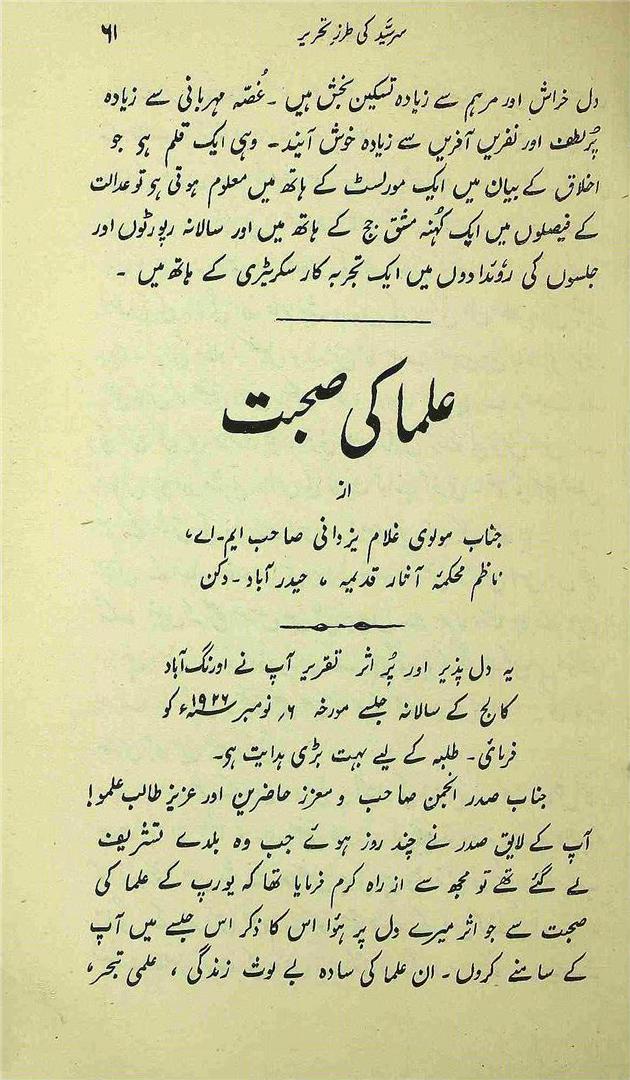 سرسیّد کی طرزِ تحریر ۶۱
دل خراش اور مرہم سے زیادہ تسکین بخش ہیں ۔ غُصّہ مہربانی سے زیادہ
پُر لطف اور نفریں آفریں سے زیادہ خوش آیند ۔ وہی ایک قلم ہی جو
اخلاق کے بیان میں ایک مورلسٹ کے ہاتھ میں معلوم ہوتی ہی تو عدالت
کے فیصلوں میں ایک کُہنہ مشق جج کے ہاتھ میں اور سالانہ رپورٹوں اور
جلسوں کی روٗئدادوں میں ایک تجربہ کار سکریٹری کے ہاتھ میں ۔
علما کی صحبت
از
جناب مولوی غلام یزدانی صاحب ایم۔اے،
ناظم محکمۂ آثار قدیمہ ، حیدرآباد ۔ دکن
یہ دل پذیر اور پُر اثر تقریر آپ نے اورنگ آباد
کالج کے سالانہ جلسے مورخہ ۶؍ نومبر ۱۹۲۶ء کو
فرمائی ۔ طلبہ کے لیے بہت بڑی ہدایت ہی۔
جناب صدر انجمن صاحب و معزز حاضرین اور عزیز طالب علمو!
آپ کے لایق صدر نے چند روز ہوئے جب وہ بلدے تشریف
لے گئے تھے تو مجھ سے از راہ کرم فرمایا تھا کہ یورپ کے علما کی
صحبت سے جو اثر میرے دل پر ہوٗا اس کا ذکر اس جلسے میں آپ
کے سامنے کروں ۔ ان علما کی سادہ بے لوث زندگی ، علمی تبحر،